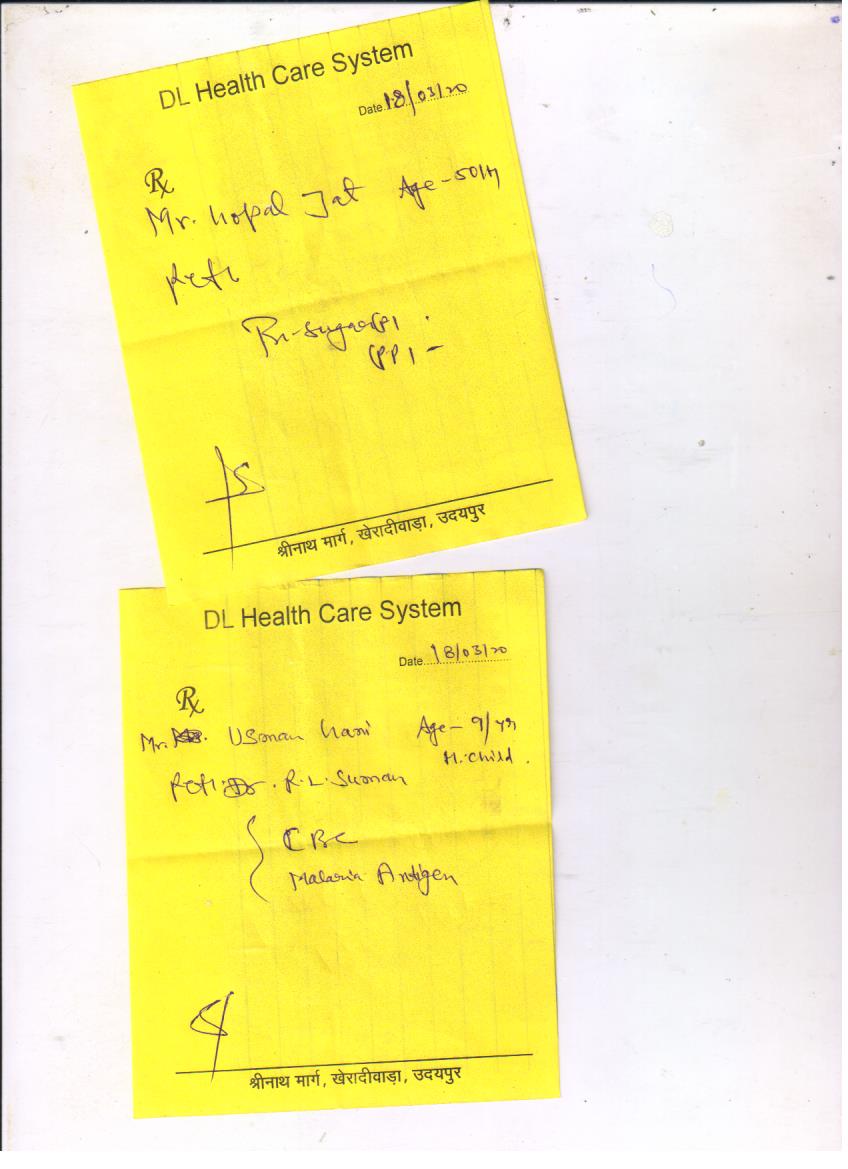 DL Health Care System
Date 18/03/20
Rx
Mr. Gopal Jat Age - 50/M
Ref:
Bl-Sugar (F) .
(PP) -
श्रीनाथ मार्ग, खेरादीवाड़ा, उदयपुर
DL Health Care System
Date 18/03/20
Rx
Mr. Usman Gani Age - 9/yr
M. child .
Ref: Dr. R.L. Suman
CBC
Malaria Antigen
श्रीनाथ मार्ग, खेरादीवाड़ा, उदयपुर